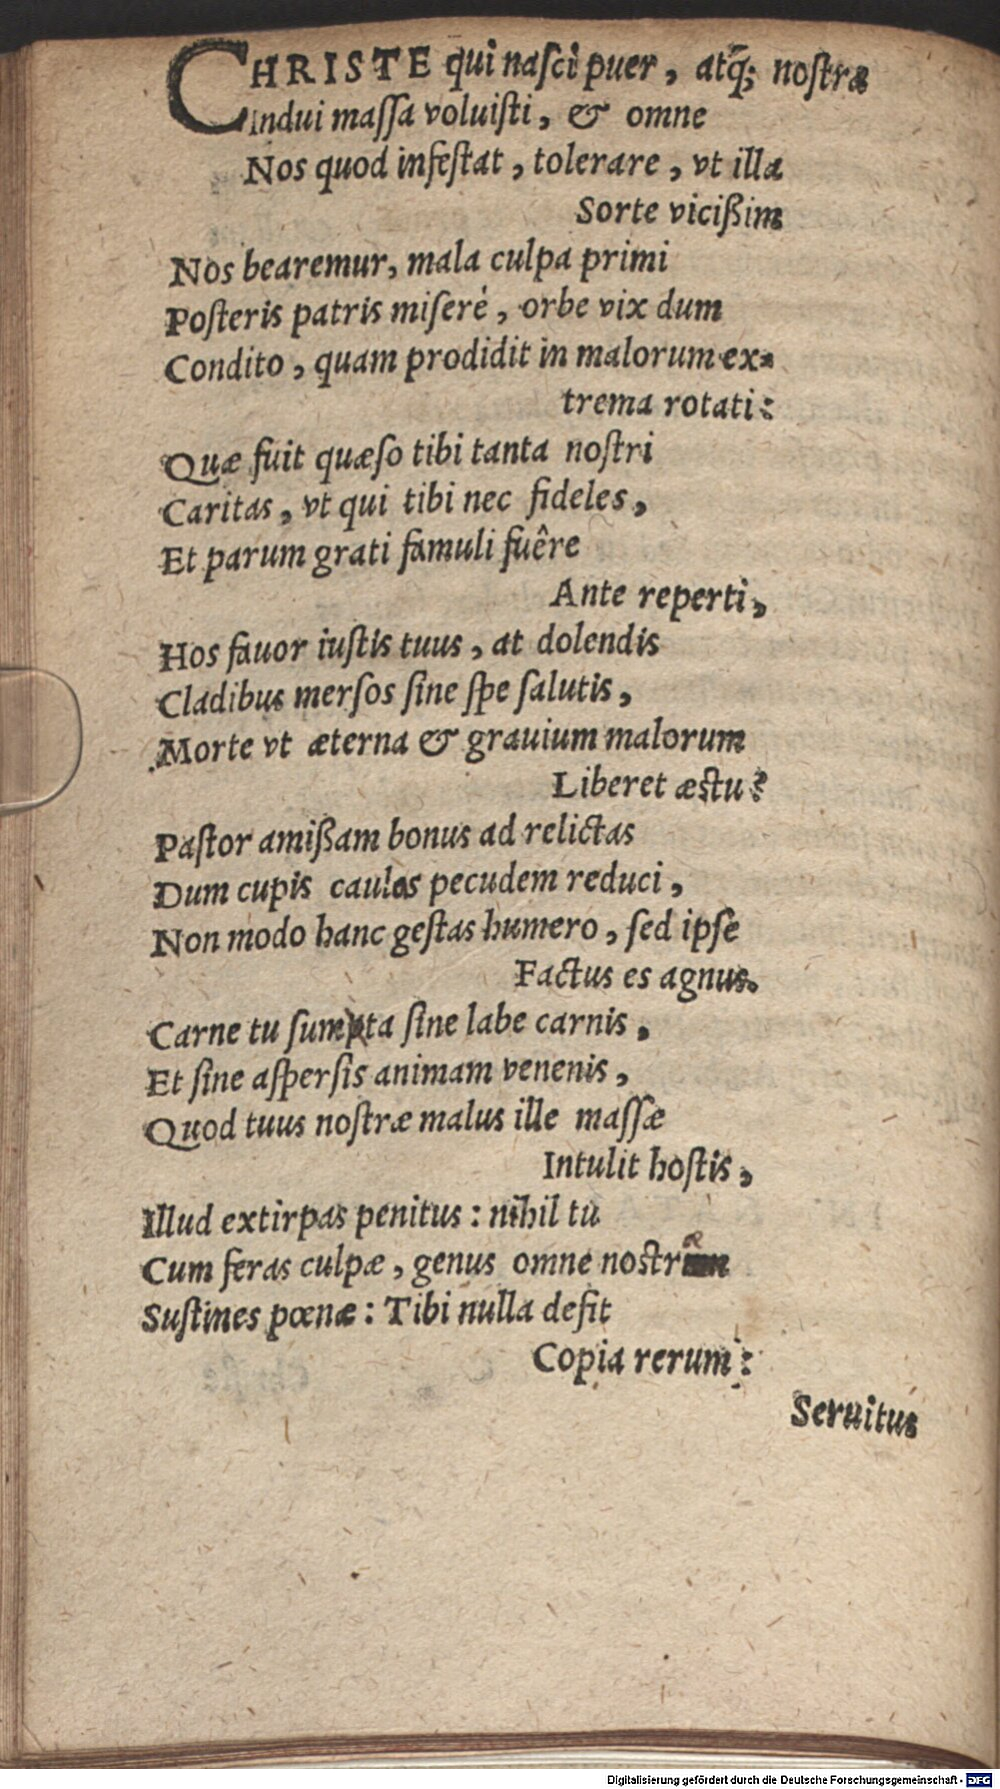 CHRISTE qui nasci puer, atq̃; nostræ
Indui massa voluisti, & omne
Nos quod infestat, tolerare, vt illa
Sorte vicißim
Nos bearemur, mala culpa primi
Posteris patris miserè, orbe vix dum
Condito, quam prodidit in malorum ex-
trema rotati:
Quæ fuit quæso tibi tanta nostri
Caritas, vt qui tibi nec fideles,
Et parum grati famuli fuêre
Ante reperti,
Hos fauor iustis tuus, at dolendis
Cladibus mersos sine spe salutis,
Morte vt æterna & grauium malorum
Liberet æstu?
Pastor amißam bonus ad relictas
Dum cupis caulas pecudem reduci,
Non modo hanc gestas humero, sed ipse
Factus es agnus.
Carne tu sumpta sine labe carnis,
Et sine aspersis animam venenis,
Quod tuus nostræ malus ille massæ
Intulit hostis,
Illud extirpas penitus: nihil tu
Cum feras culpæ, genus omne nostræ
Sustines pœnæ: Tibi nulla defit
Copia rerum:
Seruitus
Digitalisierung gefördert durch die Deutsche Forschungsgemeinschaft - DFG